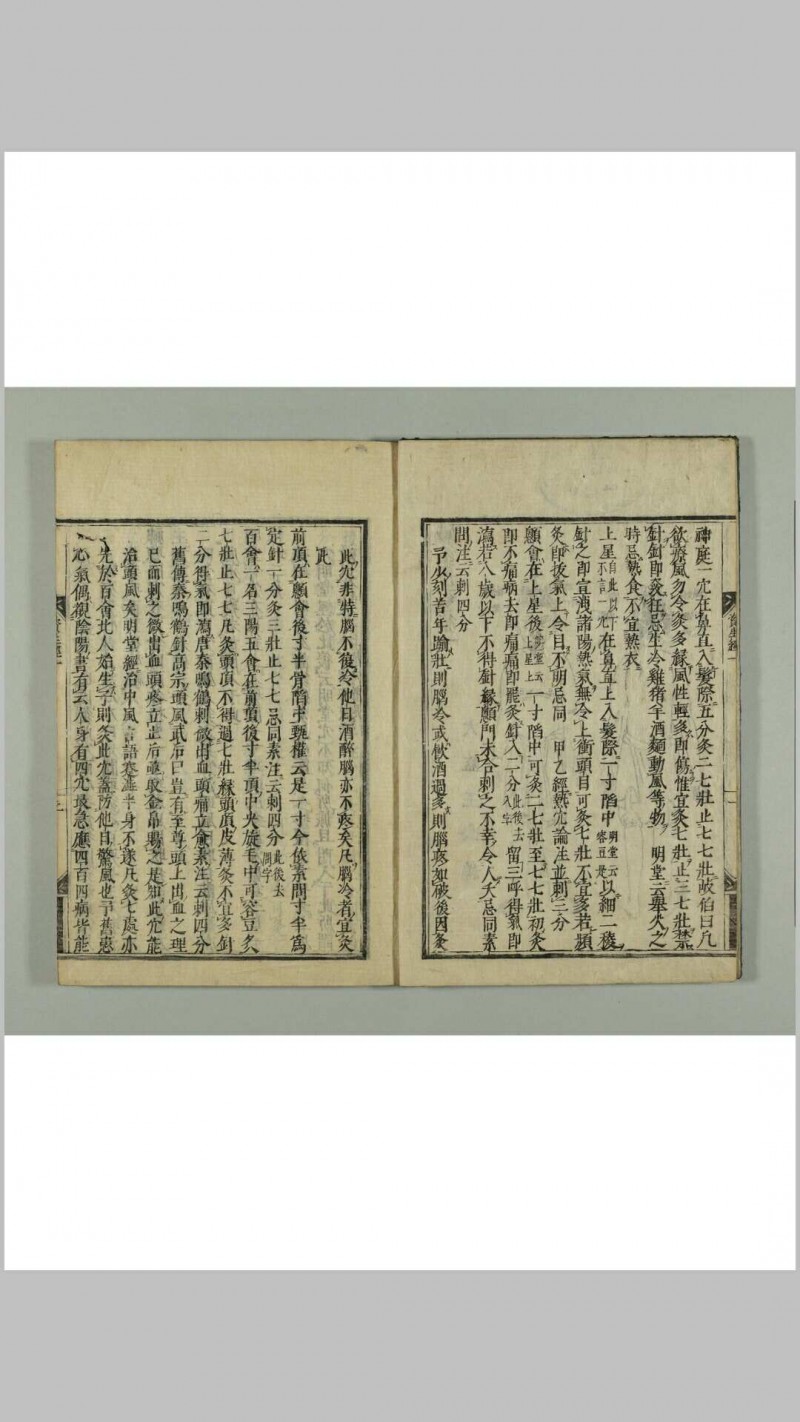 神庭一穴在鼻直入髮際五分灸二七壯止七七壯岐伯曰凡
欲療風勿令灸多緣風性輕多即傷惟宜灸七壯止三七壯禁
針針即發狂忌生冷雞猪羊酒麵動風等物明堂云舉火之
時忌熱食不宜熱衣
上星自此以下不言一穴在鼻直上入髮際一寸陷中明堂云容豆是以細二稜
針之即宜洩諸陽熱氣無令上衝頭目可灸七壯不宜多若頻
灸即拔氣上令目不明忌同甲乙經熱穴論注並刺三分
顖會在上星後明堂云上星上一寸陷中可灸二七壯至七七壯初灸
即不痛病去即痛痛即罷灸針入二分此後去入字留三呼得氣即
瀉若八歲以下不得針緣顖門未合刺之不幸令人夭忌同素
問注云刺四分
予少刻苦年踰壯則腦冷或飲酒過多則腦疼如破後因灸
資生經一
此穴非特腦不復冷他日酒醉腦亦不疼矣凡腦冷者宜灸
此
前頂在顖會後寸半骨陷中甄權云是一寸今依素問寸半為
定針一分灸三壯止七七忌同素注云刺四分此後去問字
百會一名三陽五會在前頂後寸半頂中央旋毛中可容豆灸
七壯止七七凡灸頭頂不得過七壯緣頭頂皮薄灸不宜多針
二分得氣即瀉唐秦鳴鶴刺微出血頭痛立愈素注云刺四分
舊傳秦鳴鶴針高宗頭風武后曰豈有至尊頭上出血之理
已而刺之微出血頭疼立止后亟取金帛賜之是知此穴能
治頭風矣明堂經治中風言語蹇澁半身不遂凡灸七處亦
先於百會北人始生子則灸此穴蓋防他日驚風也予舊患
心氣偶觀陰陽書有云人身有四穴最急應四百四病皆能